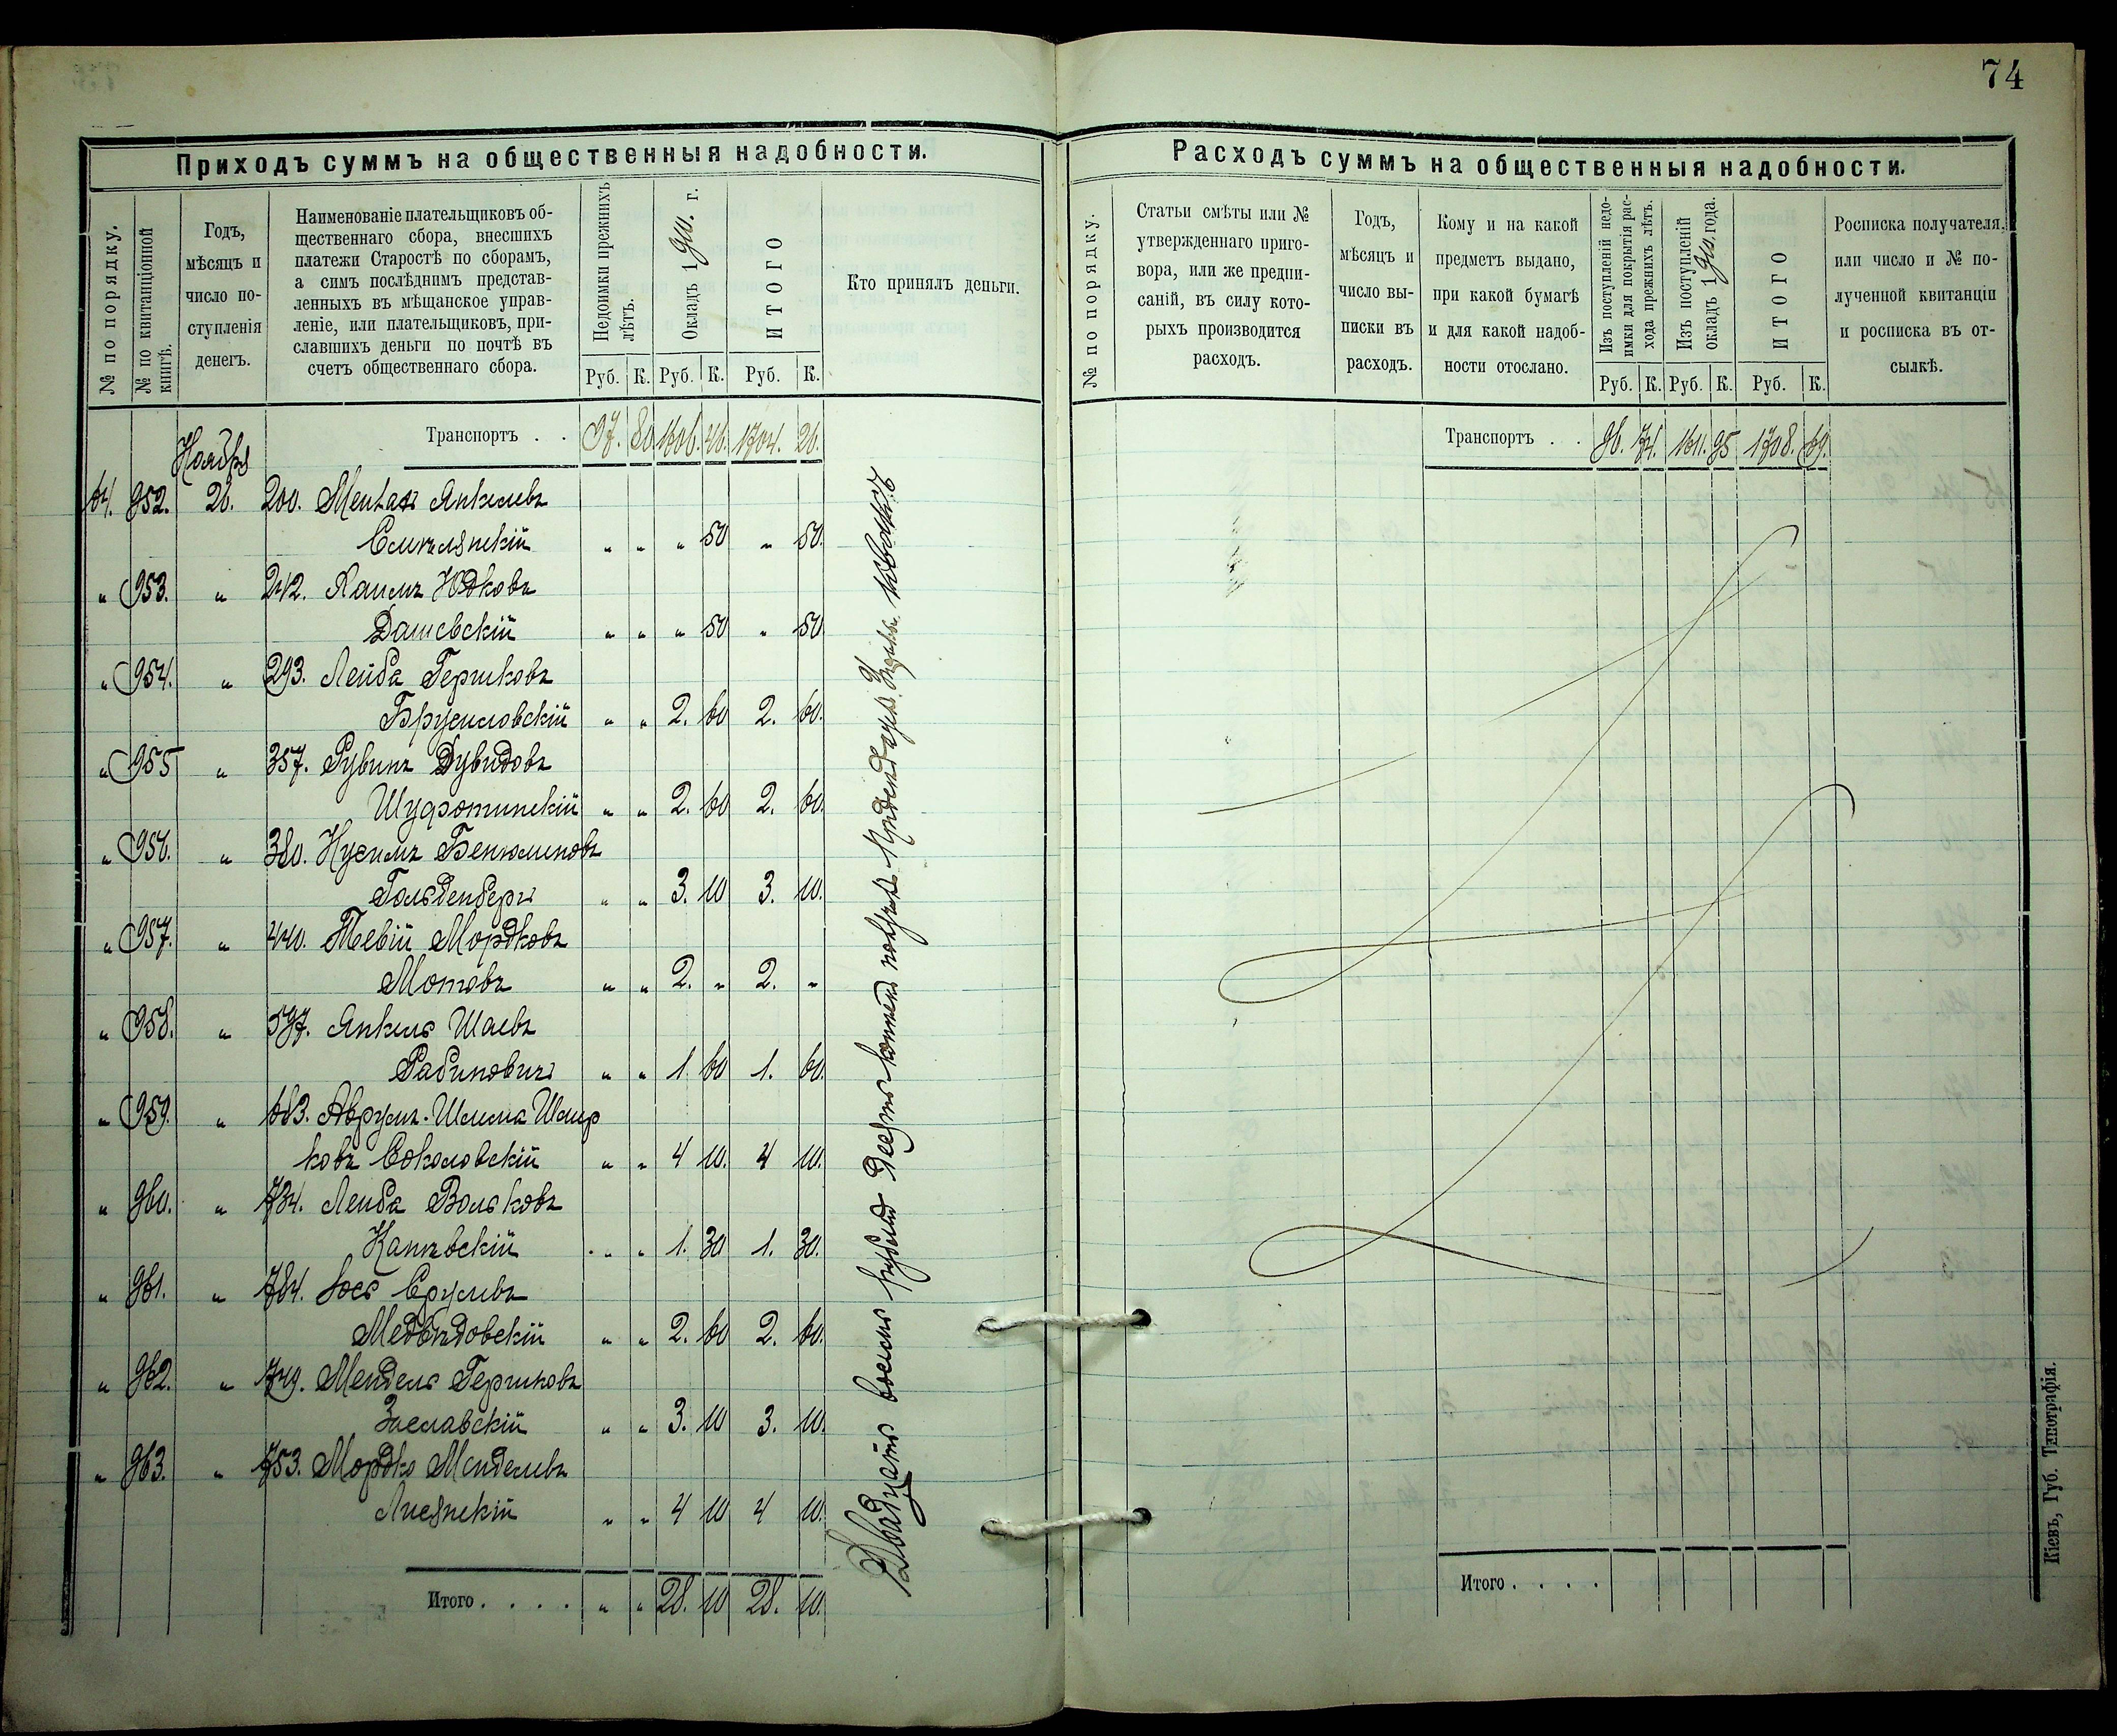 74
Приходъ суммъ на общественныя надобности.
№ по порядку.
№ по квитанціонной книгѣ.
Годъ,
мѣсяцъ и
число по-
ступленія
денегъ.
Наименованіе плательщиковъ об-
щественнаго сбора, внесшихъ
платежи Старостѣ по сборамъ,
а симъ послѣднимъ представ-
ленныхъ въ мѣщанское управ-
леніе, или плательщиковъ, при-
славшихъ деньги по почтѣ въ
счетъ общественнаго сбора.
Недоимки прежнихъ
лѣтъ.
Окладъ 190 г.
ИТОГО
Кто принялъ деньги.
Руб. К. Руб. К. Руб. К.
Транспортъ . . 97. 80. 1606. 46. 1704. 26.
Ноября
64. 952. 26. 200. Янкелевъ
" " " 50 " 50.
" 953. " 242. Хаимъ Юдковъ
Дашевскій " " " 50 " 50.
" 954. " 293. Лейба Гершковъ
Брусиловскій " " 2. 60 2. 60.
" 955 " 357. Рувинъ Дувидовъ
" " 2. 60 2. 60.
" 956. " 380. Нусимъ Бенюминовъ
Гольденбергъ " " 3. 10 3. 10.
" 957. " 440. Тевій Мордковъ
Мотовъ " " 2. " 2. "
" 958. " 597. Янкель Шаевъ
Рабиновичъ " " 1 60 1. 60.
" 959. " 683. Аврумъ-Шлема
ковъ Соколовскій " " 4 10. 4 10.
" 960. " 734. Лейба Вольковъ
Каневскій " " 1. 30 1. 30.
" 961. " 784. Іось Срулевъ
Медвѣдовскій " " 2. 60 2. 60.
" 962. " 749. Мендель Гершковъ
Заславскій " " 3. 10 3. 10.
" 963. " 753. Мордко Менделевъ
Лисянскій " " 4 10 4 10.
Итого . . . . " " 28. 10 28. 10.
Двадцать восемь рублей десять копеекъ
Расходъ суммъ на общественныя надобности.
№ по порядку.
Статьи смѣты или №
утвержденнаго приго-
вора, или же предпи-
саній, въ силу кото-
рыхъ производится
расходъ.
Годъ,
мѣсяцъ и
число вы-
писки въ
расходъ.
Кому и на какой
предметъ выдано,
при какой бумагѣ
и для какой надоб-
ности отослано.
Изъ поступленій недо-
имки для покрытія рас-
хода прежнихъ лѣтъ.
Изъ поступленій
окладъ 190 года.
ИТОГО
Росписка получателя,
или число и № по-
лученной квитанціи
и росписка въ от-
сылкѣ.
Руб. К. Руб. К. Руб. К.
Транспортъ . . 96. 74. 1611. 95 1708. 69.
Итого . . . .
Кіевъ, Губ. Типографія.